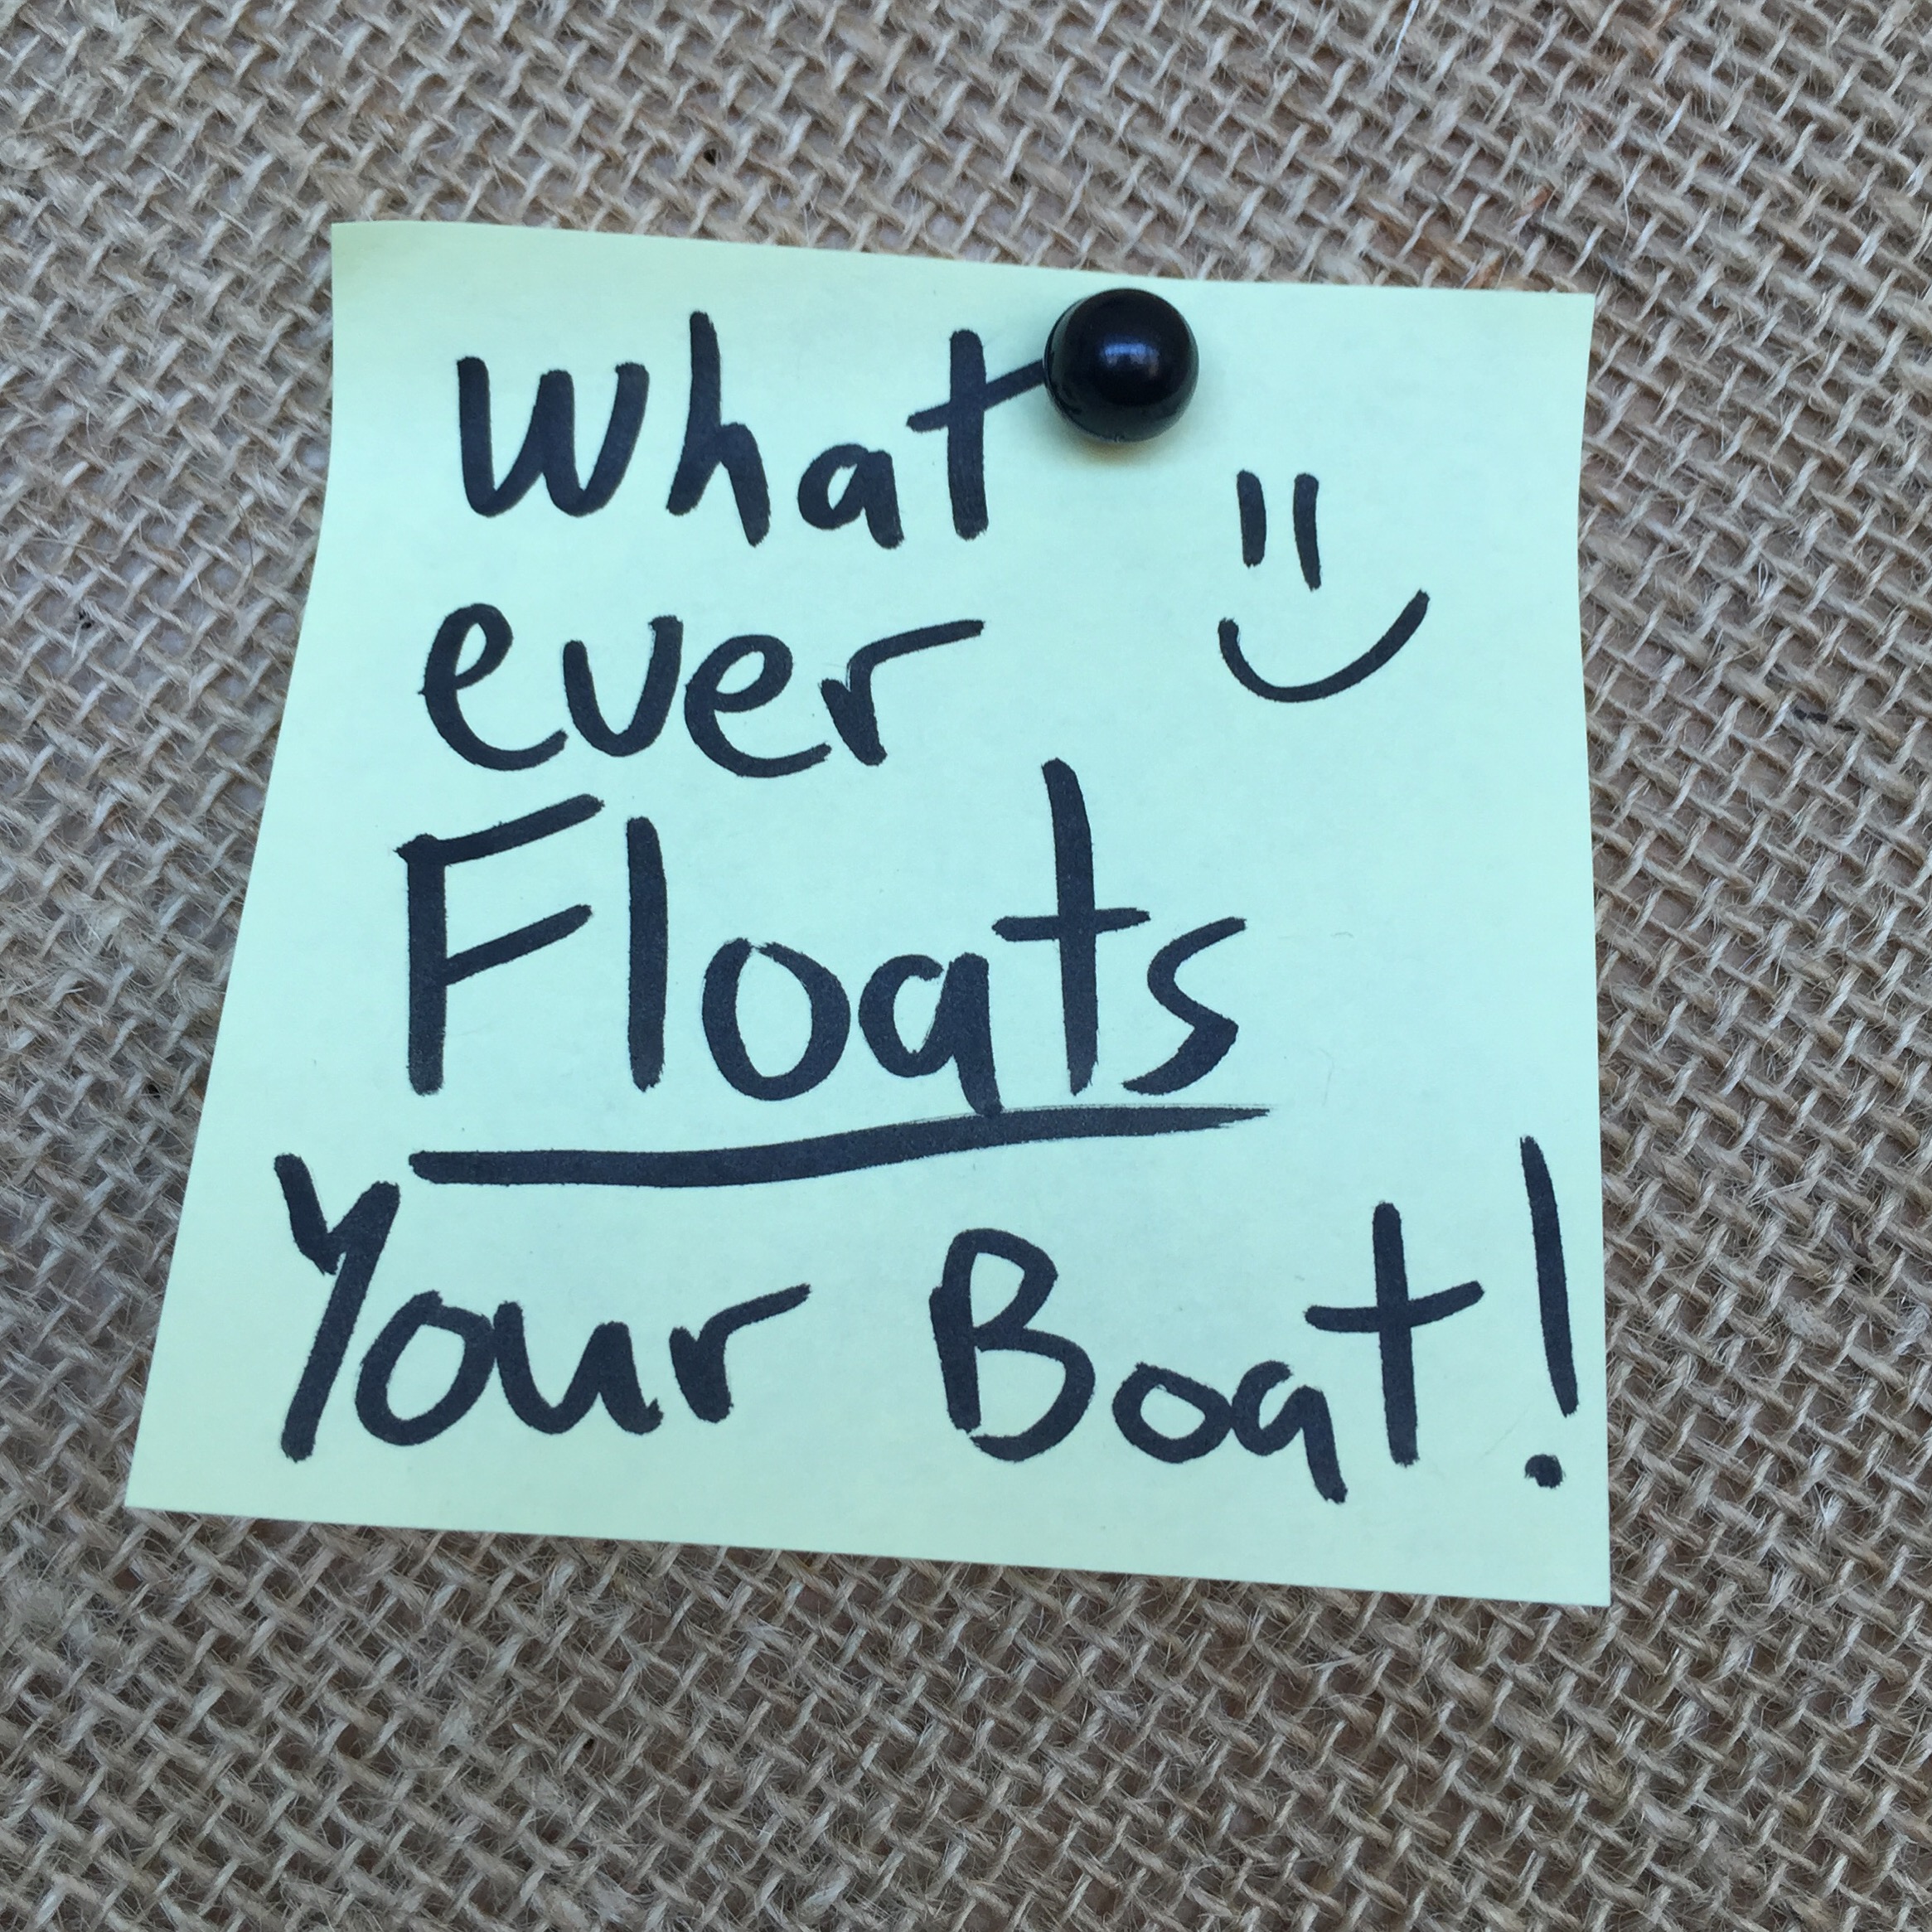 What
ever
Floats
Your Boat!